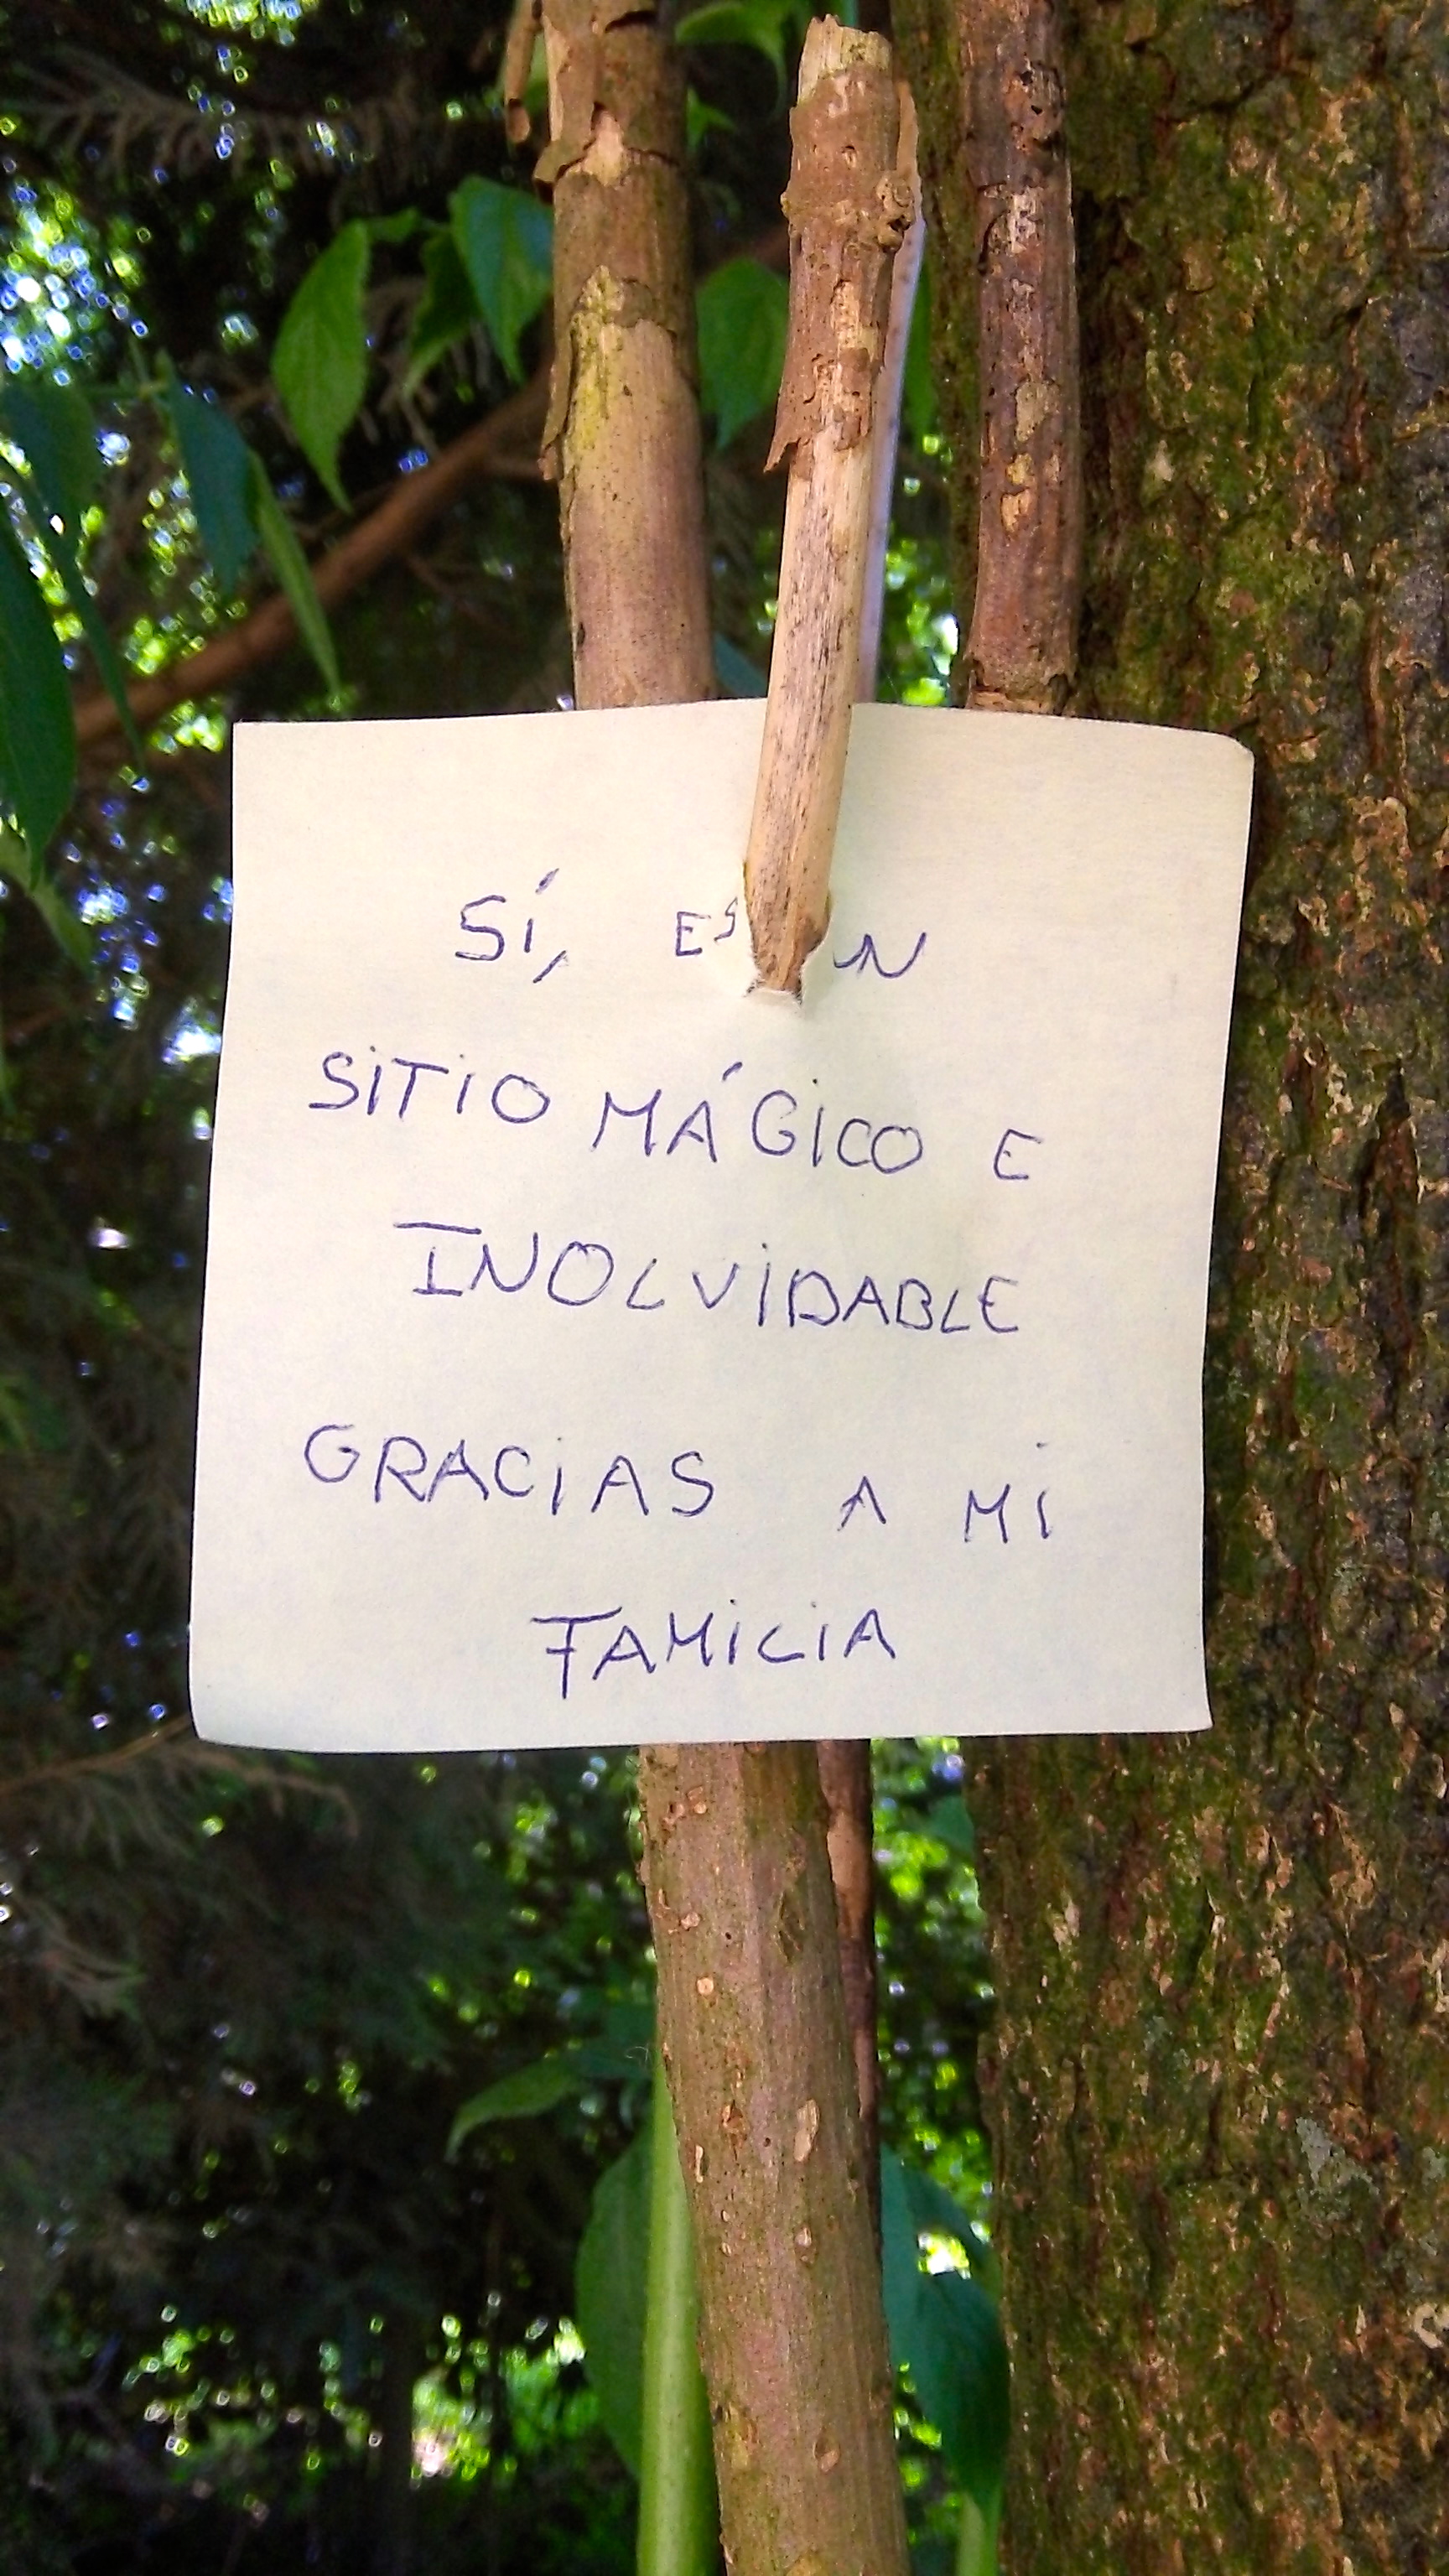 SÍ, ES UN
SITIO MÁGICO E
INOLVIDABLE
GRACIAS A MI
FAMILIA